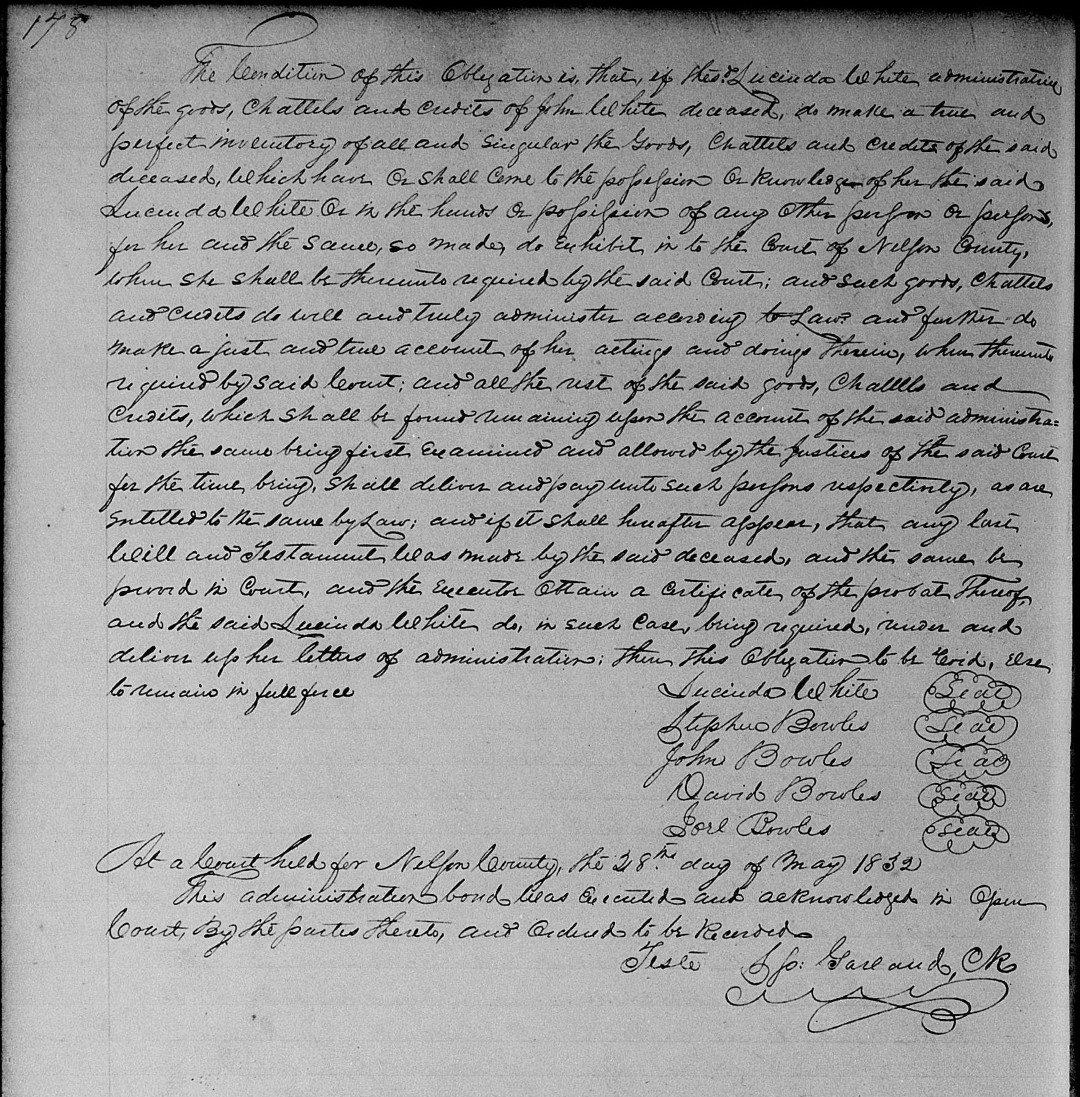 178
The Condition of this Obligation is, that, if the sd. Lucinda White administratrix
of the goods, Chattels and credits of John White deceased, do make a true and
perfect inventory of all and Singular the Goods, Chattels and credits of the said
deceased, Which have Or Shall Come to the possession Or knowledge of her the said
Lucinda White Or in the hands Or possession of any Other person or persons,
for her and the Same, so made, do Exhibit in to the Court of Nelson County,
when She Shall be thereunto required by the said Court; and such goods, Chattels
and Credits do well and truly administer according to Law: and further do
make a just and true account of her actings and doings Therein, when thereunto
required by Said Court; and all the rest of the said goods, Chattels and
Credits, which Shall be found remaining upon the account of the said administra=
tion the same being first Examined and allowed by the Justices of the said Court
for the time being, Shall deliver and pay unto such persons respectively, as are
Entitled to the same by Law; and if it Shall hereafter appear, that any last
Will and Testament Was made by the said deceased, and the same be
proved in Court, and the Executor Obtain a Certificate of the probat Thereof,
and the said Lucinda White do, in such Case, being required, render and
deliver up her letters of administration; then this Obligation to be Void, Else
to remain in full force
Lucinda White Seal
Stephen Bowles Seal
John Bowles Seal
David Bowles Seal
Joel Bowles Seal
At a Court held for Nelson County, the 28th day of May 1832
This administration bond Was Executed and acknowledged in Open
Court, By the parties thereto, and Ordered to be Recorded
Teste Sp: Garland, Ck